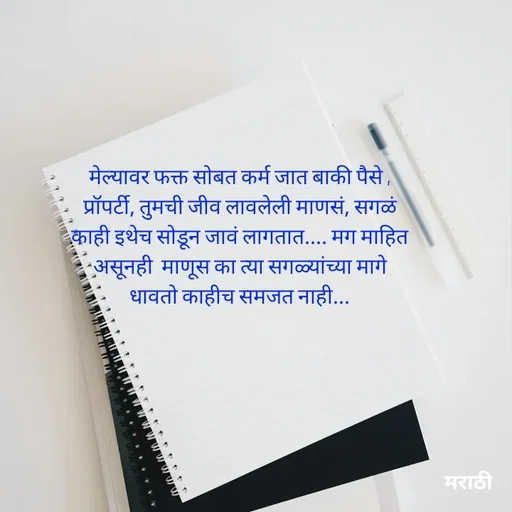 मेल्यावर फक्त सोबत कर्म जात बाकी पैसे ,
प्रॉपर्टी, तुमची जीव लावलेली माणसं, सगळं
काही इथेच सोडून जावं लागतात.... मग माहित
असूनही माणूस का त्या सगळ्यांच्या मागे
धावतो काहीच समजत नाही...
मराठी